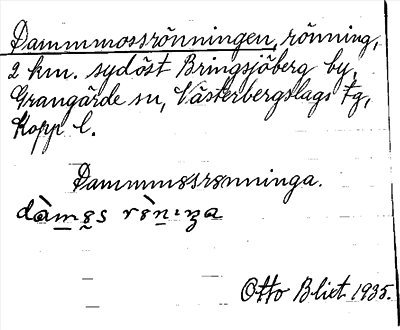 Dammmossrönningen, rönning,
2 km. sydöst Bringsjöberg by,
Grangärde sn, Västerbergslags Fg,
Kopp l.
Dammmøsrønninga.
dàm̲o̲s rön̲ıŋa
Otto Blixt 1935.